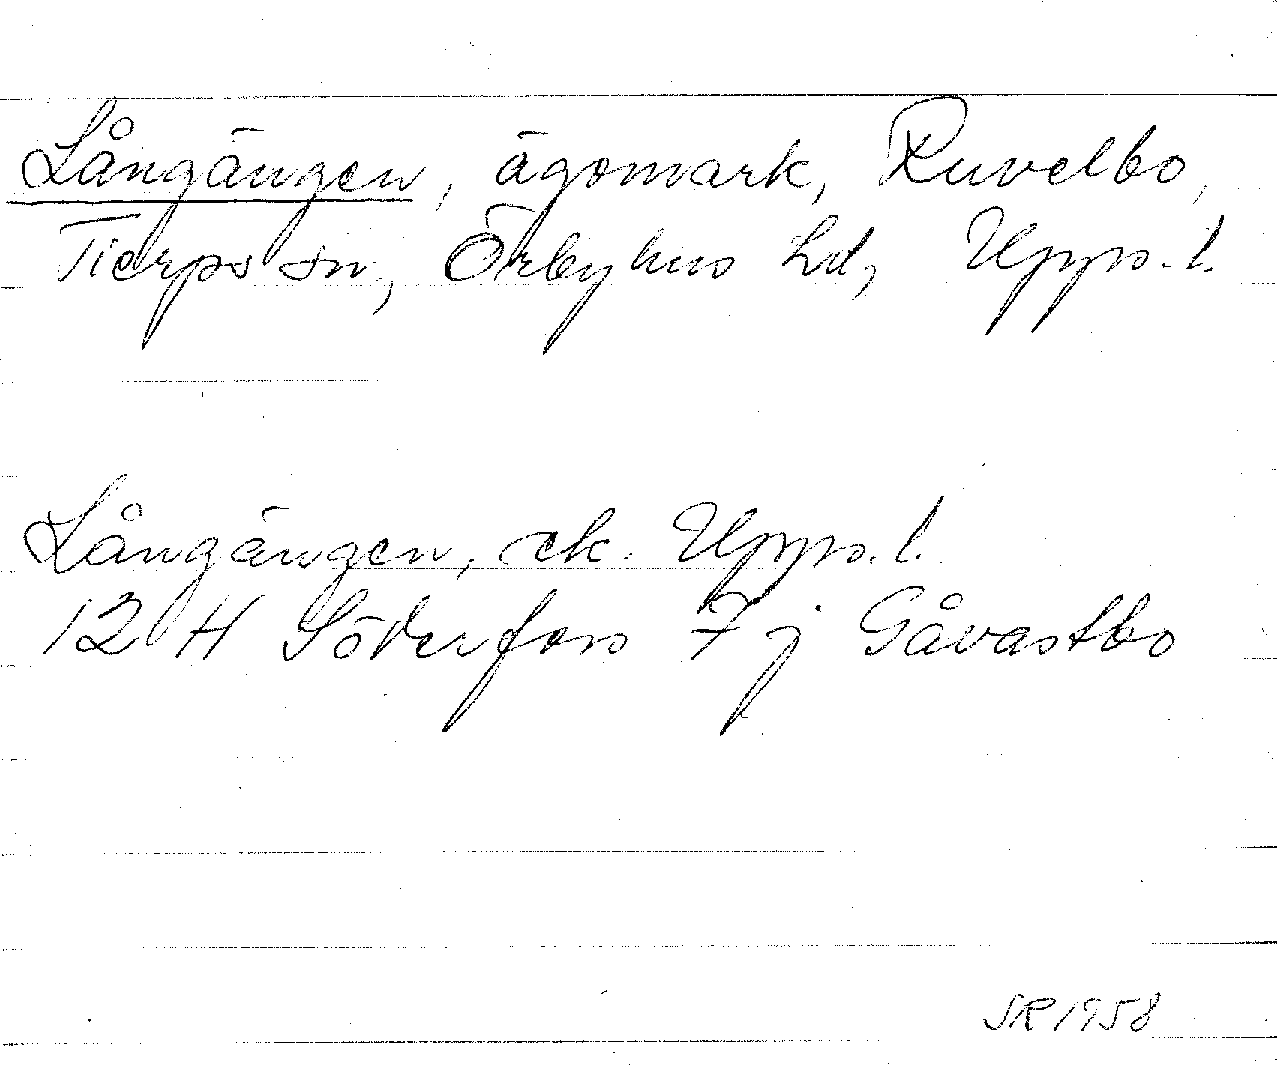 Långängen, ägomark, Ruvelbo,
Tierps sn, Örbyhus hd, Upps. l.
Långängen, ek. Upps. l.
12 H Söderfors 7 j Gåvastbo
SR 1958